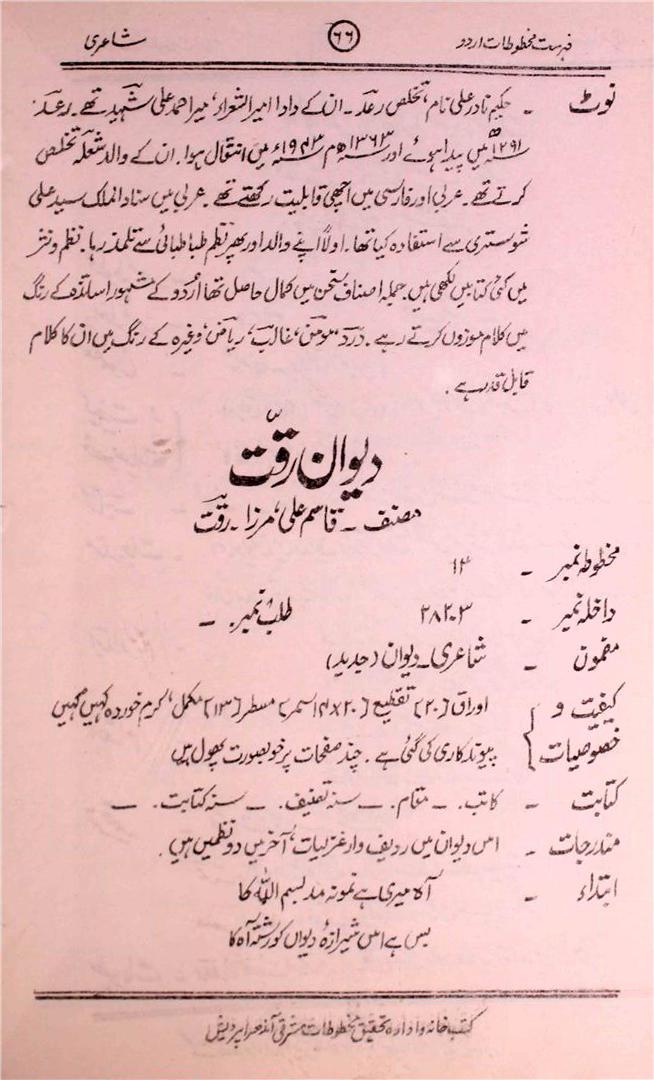 فہرست مخطوطات اردو ۶۶ شاعری
نوٹ ۔ حکیم نادر علی نام، تخلص رعد ۔ ان کے دادا امیر الشعراء، میر احمد علی شہید تھے ۔ رعد
۱۲۹۱ھ میں پیدا ہوئے اور ۱۳۶۳ھ م ۱۹۴۳ء میں انتقال ہوا ۔ ان کے والد شعلہ تخلص
کرتے تھے ۔ عربی اور فارسی میں اچھی قابلیت رکھتے تھے ۔ عربی میں سناد الملک سید علی
شوستری سے استفادہ کیا تھا ۔ اولاً اپنے والد اور پھر نظم طباطبائی سے تلمذ رہا ۔ نظم و نثر
میں کئی کتابیں لکھی ہیں ۔ جملہ اصناف سخن میں کمال حاصل تھا اردو کے مشہور اساتذہ کے رنگ
میں کلام موزوں کرتے رہے ۔ درد، مومن، غالب، ریاض، وغیرہ کے رنگ میں ان کا کلام
قابل قدر ہے ۔
دیوان رقّت
مصنف ۔ قاسم علی، مرزا ۔ رقت
مخطوطہ نمبر ۔ ۱۴
داخلہ نمبر ۔ ۲۸۲۰۳ طلب نمبر ۔ ۔
مضمون ۔ شاعری ۔ دیوان (جدید)
کیفیت و اوراق [۲۰] تقطیع [۲۰×۱۴ سمر] مسطر [۱۳] مکمل، کرم خوردہ کہیں کہیں
خصوصیات پیوند کاری کی گئی ہے ۔ چند صفحات پر خوبصورت پھول ہیں
کتابت ۔ کاتب ۔ ۔ مقام ۔ ۔ سنہ تصنیف ۔ ۔ سنہ کتابت ۔ ۔
مندرجات ۔ اس دیوان میں ردیف وار غزلیات، آخر میں دو نظمیں ہیں ۔
ابتداء ۔ آہ میری ہے نمونہ مد بسم اللہ کا
بس ہے اس شیرازۂ دیواں کو رشتہ آہ کا
کتب خانہ و ادارہ تحقیق مخطوطات مشرقی آندھرا پردیش